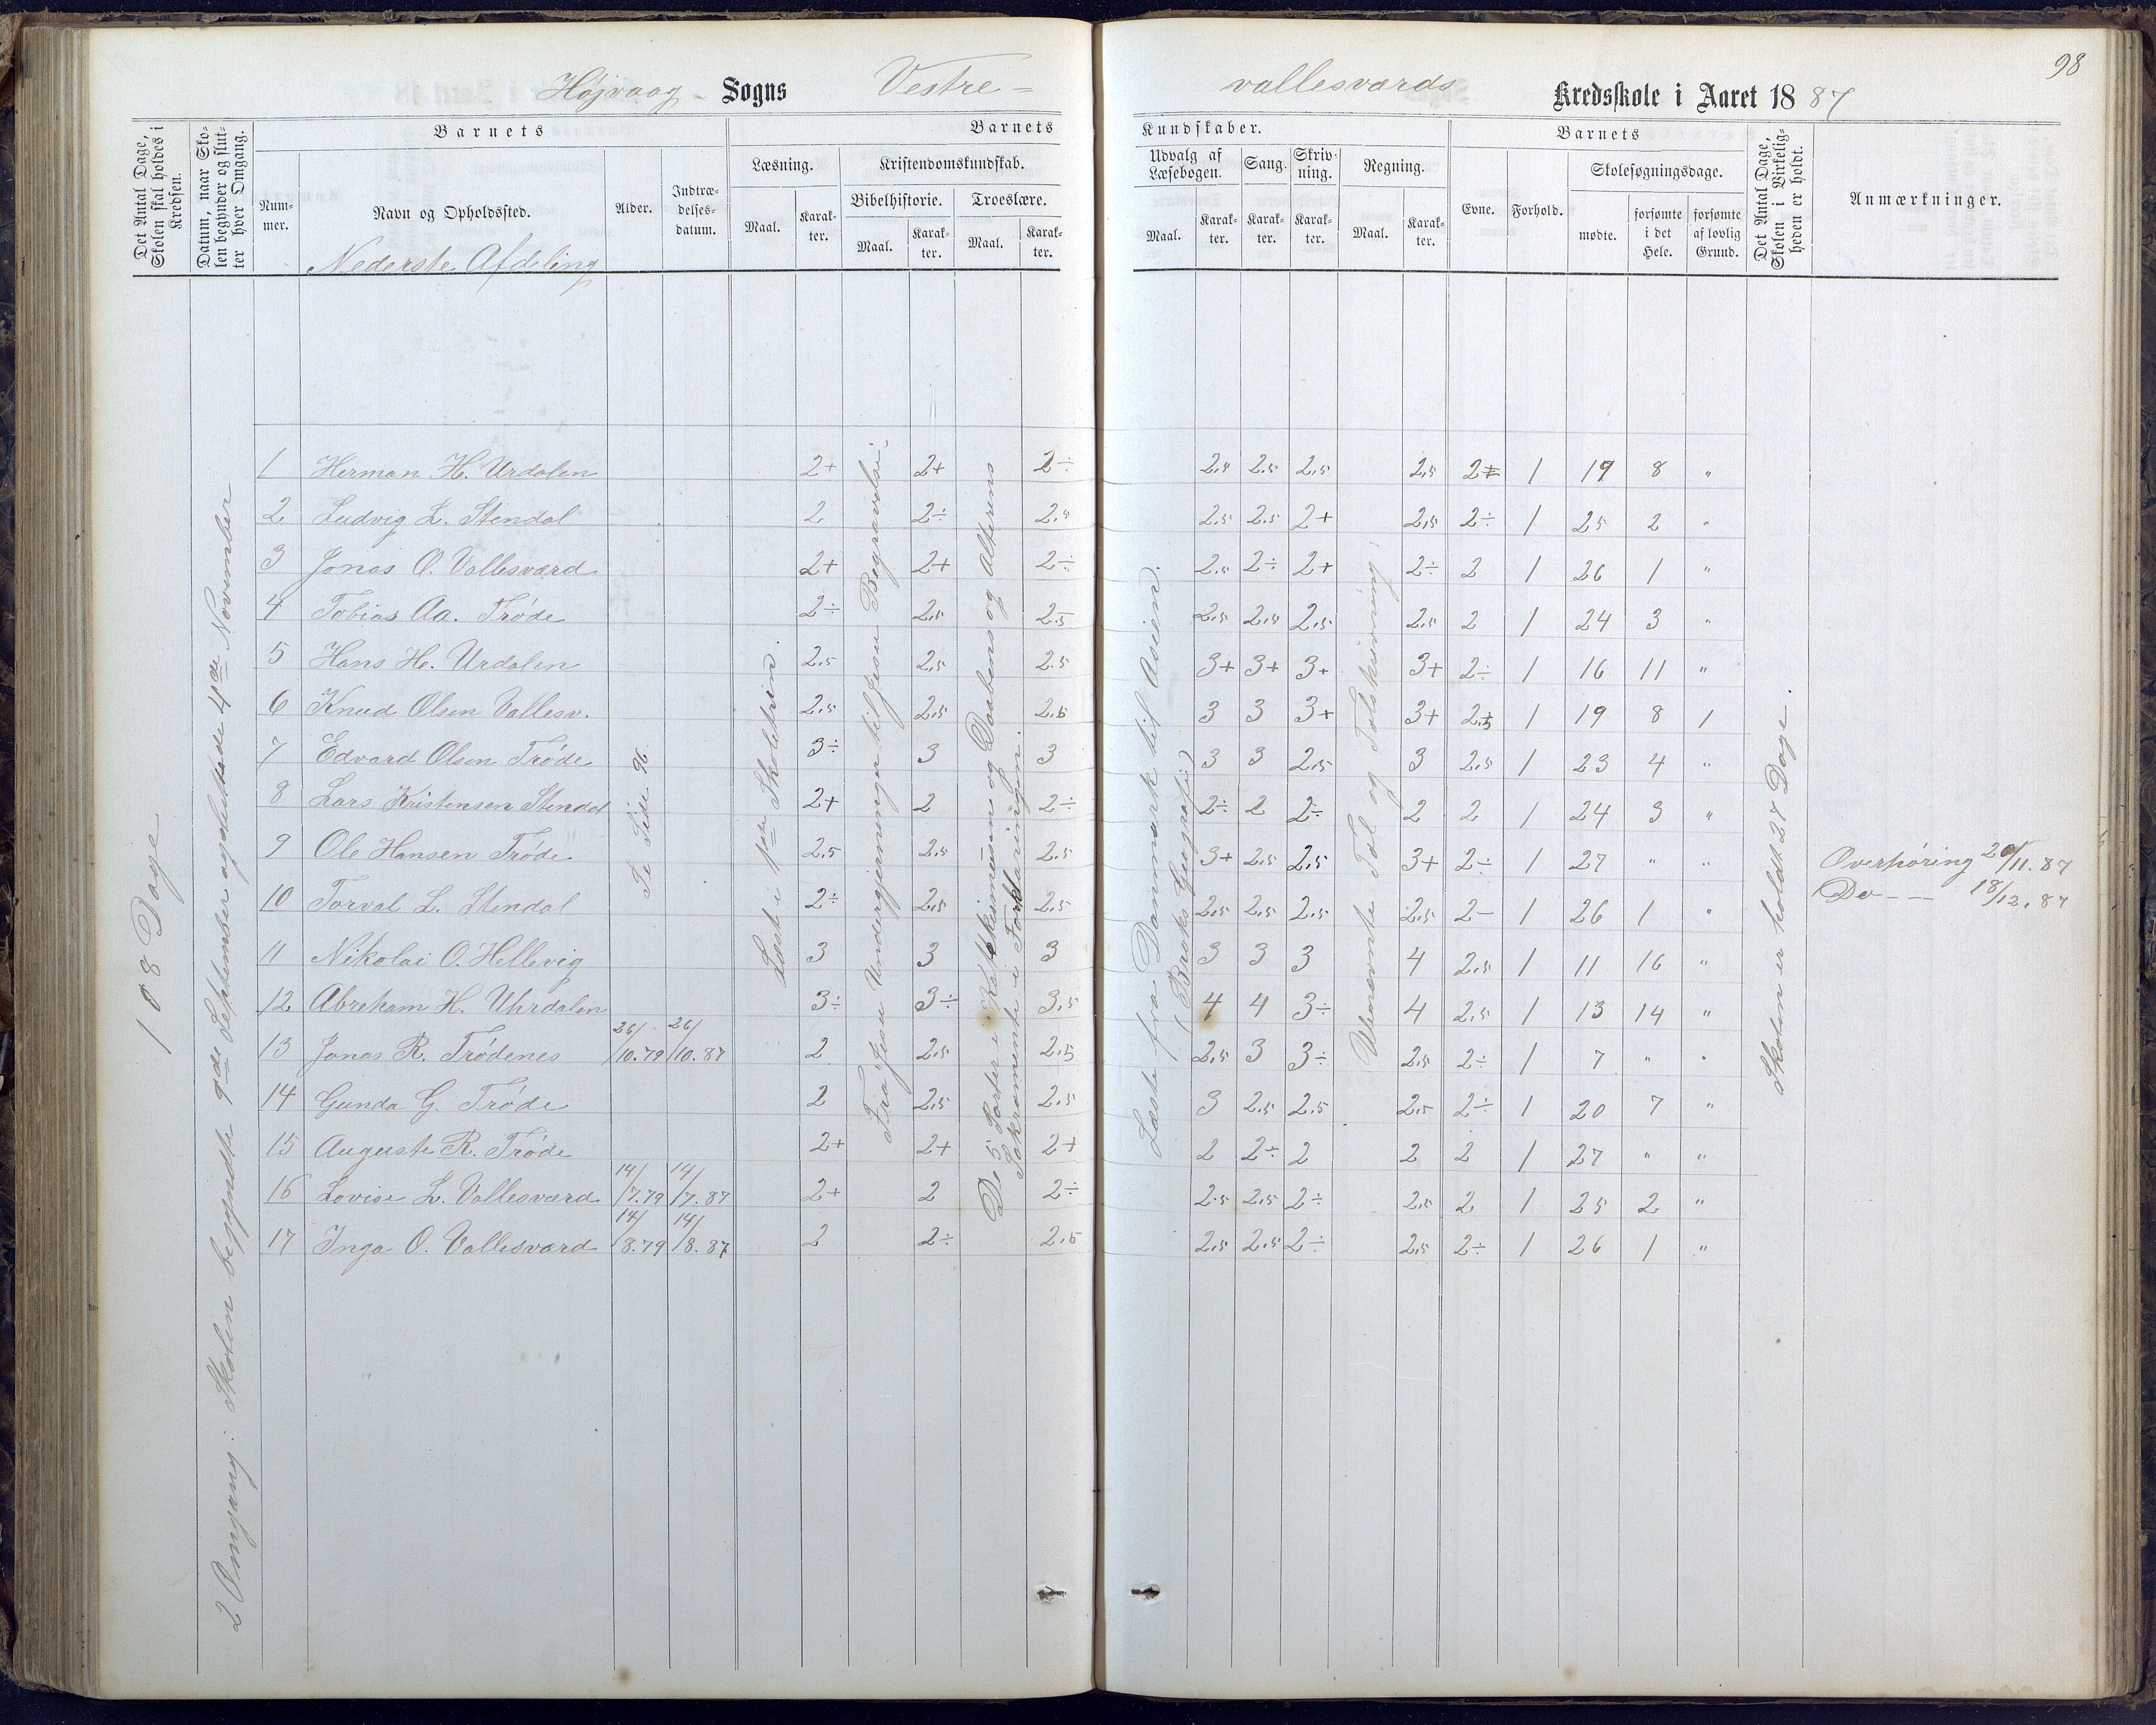 98
Højvaag - Sogns Vestre =
vallesværds Kredsskole i Aaret 1887
Det Antal Dage, Skolen skal holdes i Kredsen.
Datum, naar Skolen begynder og slutter hver Omgang.
Barnets
Nummer.
Navn og Opholdssted.
Nederste Afdeling
Alder.
Indtrædelsesdatum.
Barnets
Læsning.
Maal.
Karakter.
Kristendomskundskab.
Bibelhistorie.
Maal.
Karakter.
Troeslære.
Maal.
Karakter.
Kundskaber.
Udvalg af Læsebogen.
Maal.
Karakter.
Sang.
Karakter.
Skrivning.
Karakter.
Regning.
Maal.
Karakter.
Barnets
Evne.
Forhold.
Skolesøgningsdage.
mødte.
forsømte i det Hele.
forsømte af lovlig Grund.
Det Antal Dage, Skolen i Virkeligheden er holdt.
Anmærkninger.
108 Dage
2 Omgang: Skolen begyndte 9de September og sluttede 4de November
Se Side 96
Læst i 1ste Skoletrin.
Fra Jesu Undergjerninger til Jesu Begravelse.
De 5 Parter i Katekismusen og Daabens og Alterens
Sakramente i Forklaringen.
Læste fra Danmark til Asien.
(Broks Geografi)
Ubenævnte Tal og Talskrivning
Skolen er holdt 27 Dage.
1 Herman H. Urdalen 2+ 2+ 2÷ 2.5 2.5 2.5 2.5 2÷ 1 19 8 "
2 Ludvig L. Stendal 2 2÷ 2.5 2.5 2.5 2+ 2.5 2÷ 1 25 2 "
3 Jonas O. Vallesværd 2+ 2+ 2÷ 2.5 2÷ 2+ 2÷ 2 1 26 1 "
4 Tobias Aa. Trøde 2÷ 2.5 2.5 2.5 2.5 2.5 2.5 2 1 24 3 "
5 Hans H. Urdalen 2.5 2.5 2.5 3+ 3+ 3+ 3+ 2÷ 1 16 11 "
6 Knud Olsen Vallesv. 2.5 2.5 2.5 3 3 3+ 3+ 2.5 1 19 8 1
7 Edvard Olsen Trøde 3÷ 3 3 3 3 2.5 3 2.5 1 23 4 "
8 Lars Kristensen Stendal 2+ 2 2÷ 2÷ 2 2÷ 2 2 1 24 3 "
9 Ole Hansen Trøde 2.5 2.5 2.5 3+ 2.5 2.5 3+ 2÷ 1 27 " "
10 Torval L. Stendal 2÷ 2.5 2.5 2.5 2.5 2.5 2.5 2- 1 26 1 "
11 Nikolai O. Hellevig 3 3 3 3 3 3 4 2.5 1 11 16 "
12 Abreham H. Uhrdalen 3÷ 3÷ 3.5 4 4 3÷ 4 2.5 1 13 14 "
13 Jonas R. Trødenes 26/10.79 26/10.87 2 2.5 2.5 2.5 3 3÷ 2.5 2÷ 1 7 " "
14 Gunda G. Trøde 2 2.5 2.5 3 2.5 2.5 2.5 2÷ 1 20 7 "
15 Auguste R. Trøde 2+ 2+ 2+ 2 2÷ 2 2 2 1 27 " "
16 Lovise L. Vallesværd 14/7.79 14/7.87 2+ 2 2÷ 2.5 2.5 2÷ 2.5 2 1 25 2 "
17 Inga O. Vallesværd 14/8.79 14/8.87 2 2÷ 2.5 2.5 2.5 2÷ 2.5 2÷ 1 26 1 "
Overhøring 20/11.87
Do - - - 18/12.87